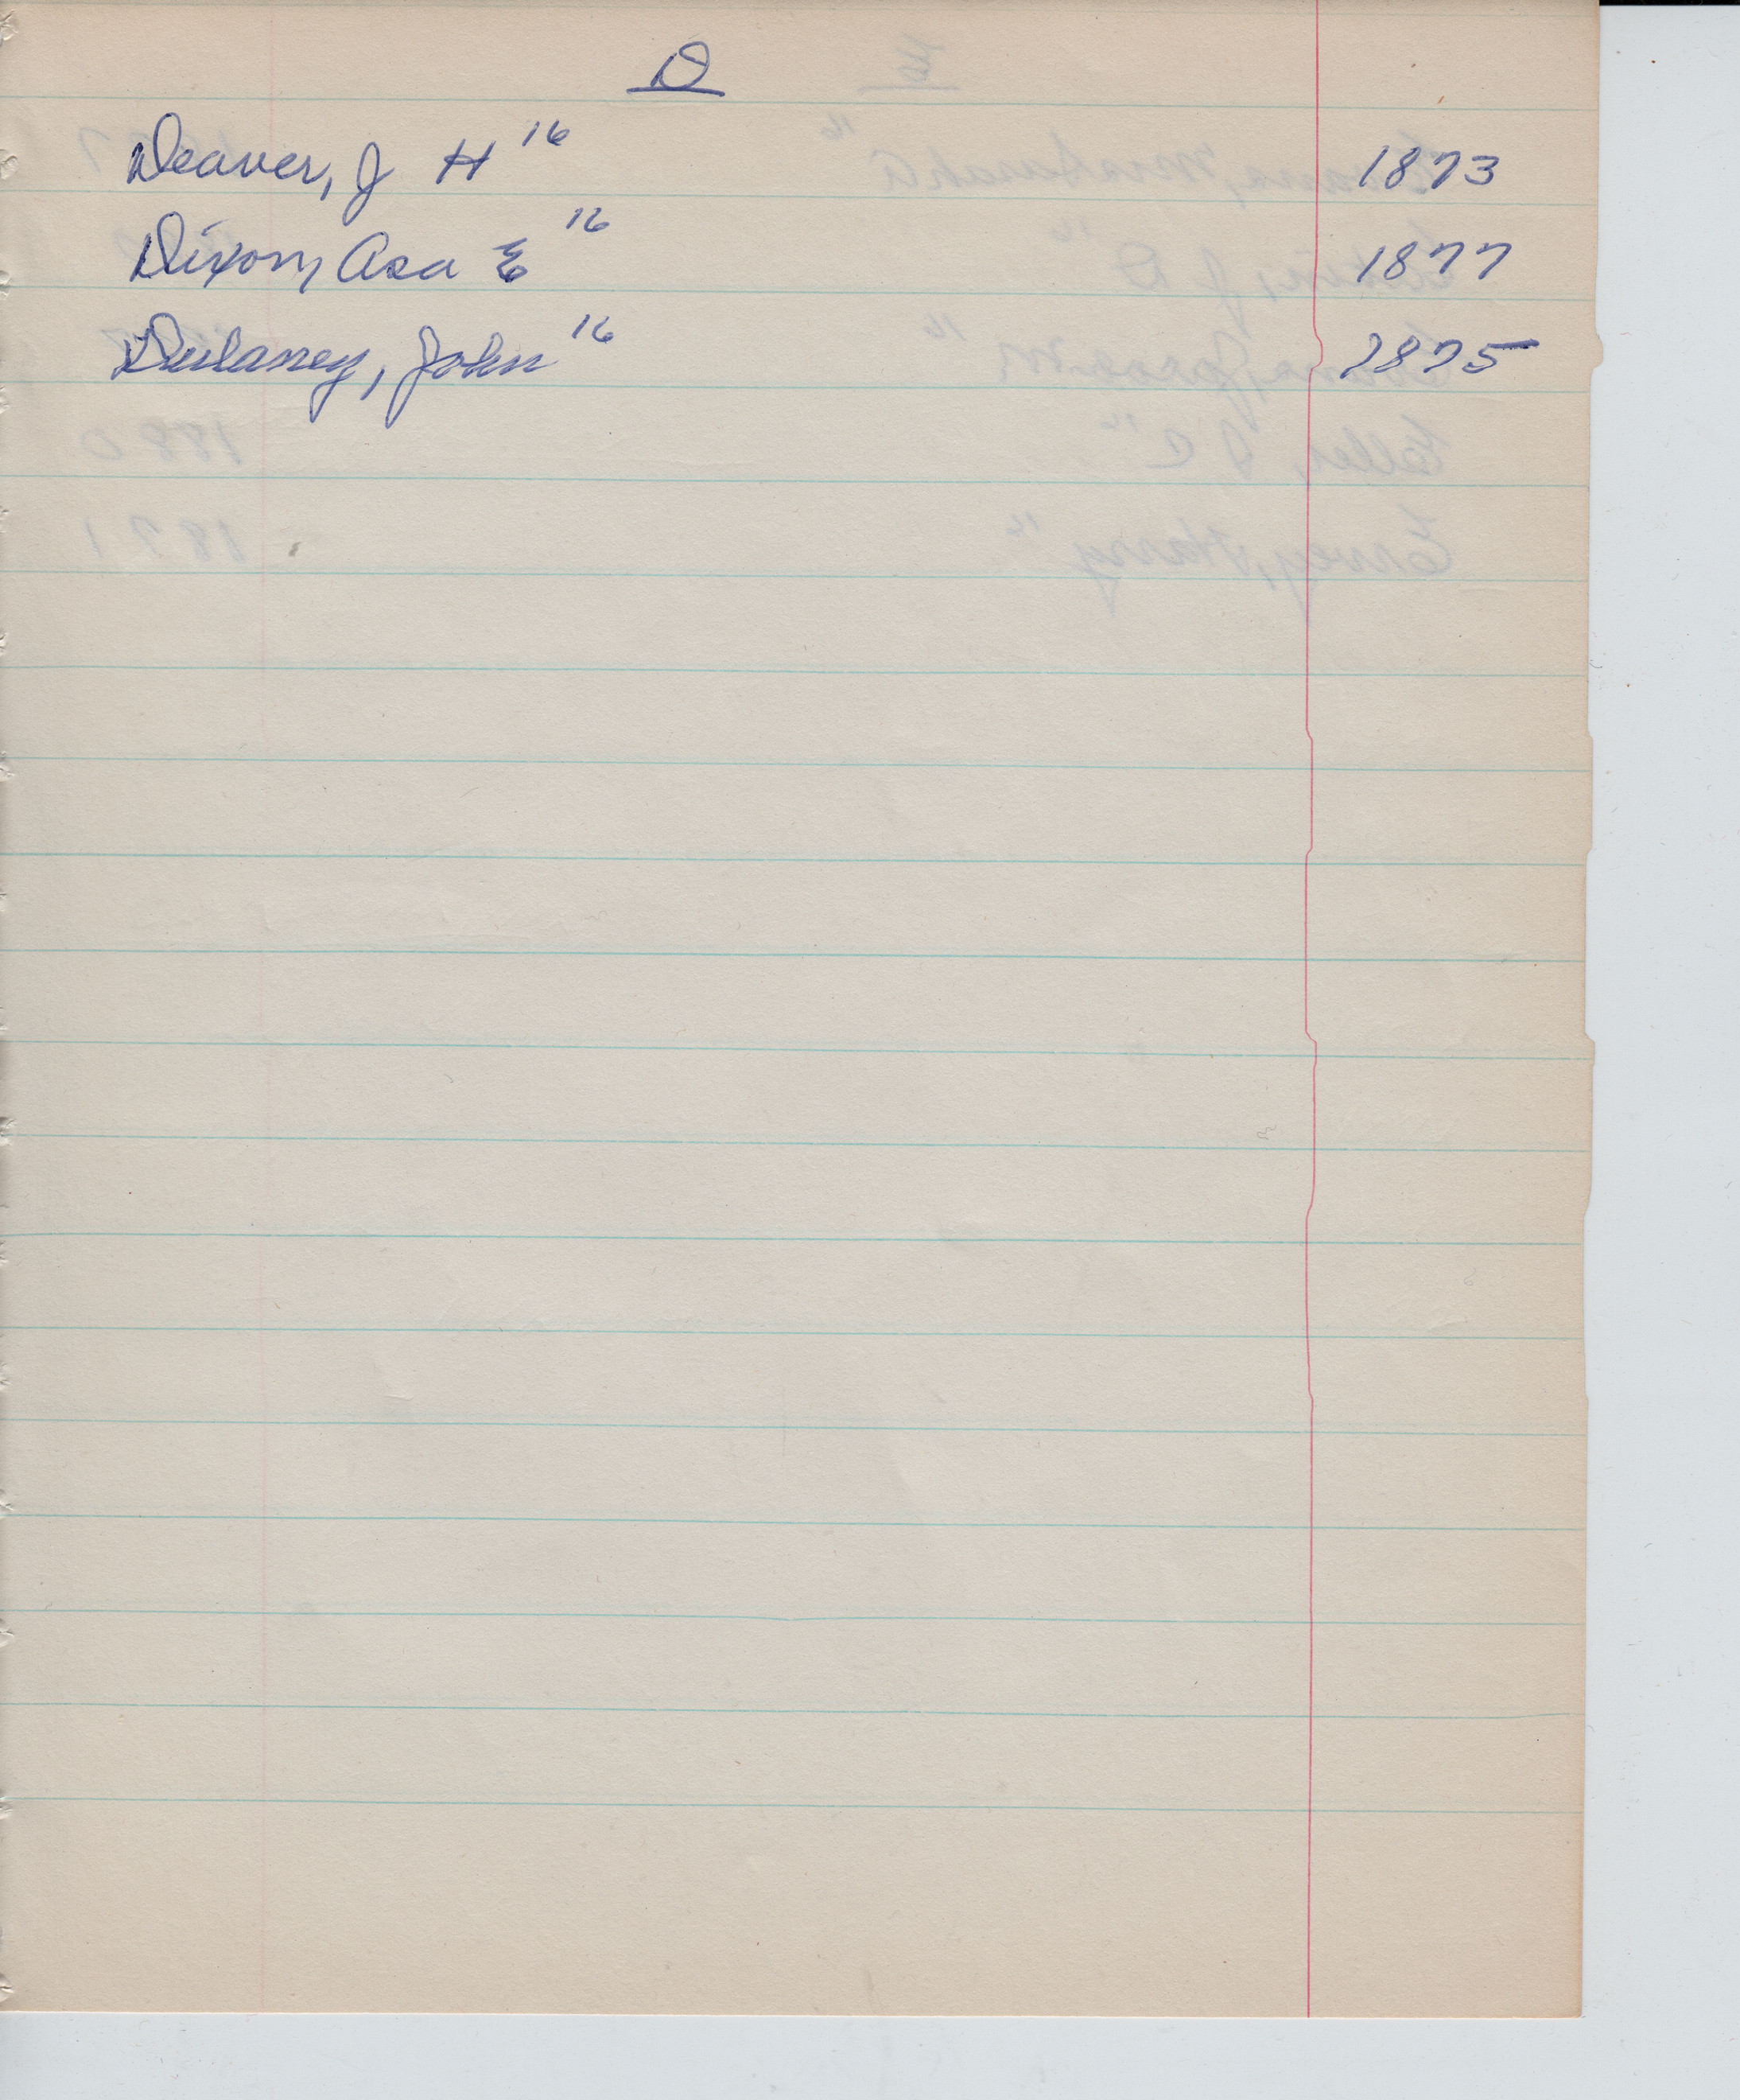 D
Deaver, J H 16 1873
Dixon, Asa E 16 1877
Dulaney, John 16 1875